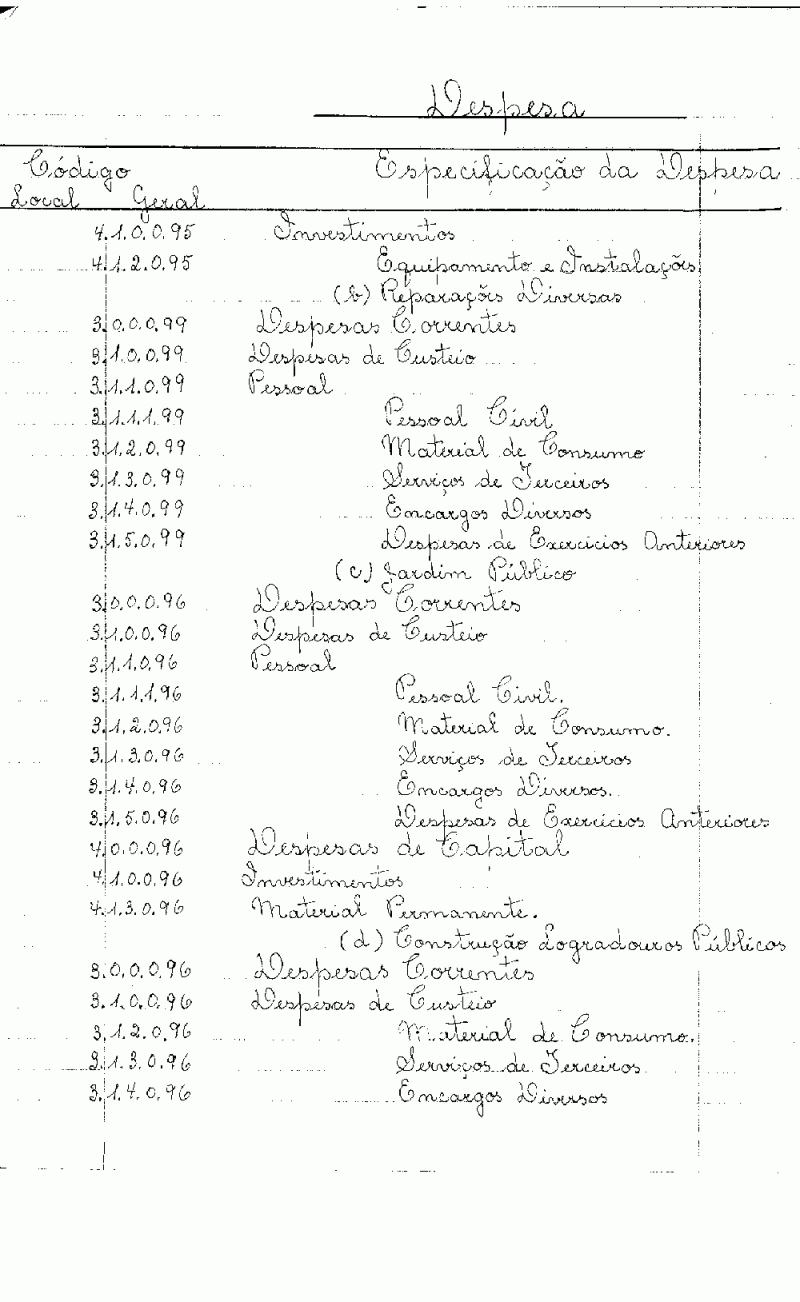 Despesa
Código Especificação da Despesa
Local Geral
4.1.0.0.95 Investimentos
4.1.2.0.95 Equipamento e Instalações
(b) Reparações Diversas
3.0.0.0.99 Despesas Correntes
3.1.0.0.99 Despesas de Custeio
3.1.1.0.99 Pessoal
3.1.1.1.99 Pessoal Civil
3.1.2.0.99 Material de Consumo
3.1.3.0.99 Serviços de Terceiros
3.1.4.0.99 Encargos Diversos
3.1.5.0.99 Despesas de Exercícios Anteriores
(c) Jardim Público
3.0.0.0.96 Despesas Correntes
3.1.0.0.96 Despesas de Custeio
3.1.1.0.96 Pessoal
3.1.1.1.96 Pessoal Civil.
3.1.2.0.96 Material de Consumo.
3.1.3.0.96 Serviços de Terceiros
3.1.4.0.96 Encargos Diversos.
3.1.5.0.96 Despesas de Exercícios Anteriores
4.0.0.0.96 Despesas de Capital
4.1.0.0.96 Investimentos
4.1.3.0.96 Material Permanente.
(d) Construção Logradouros Públicos
3.0.0.0.96 Despesas Correntes
3.1.0.0.96 Despesas de Custeio
3.1.2.0.96 Material de Consumo.
3.1.3.0.96 Serviços de Terceiros
3.1.4.0.96 Encargos Diversos